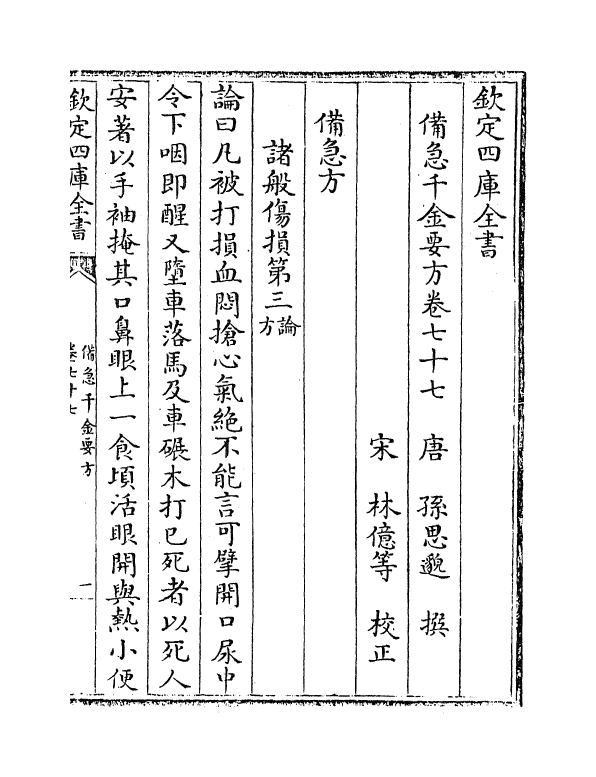 欽定四庫全書
備急千金要方卷七十七 唐 孫思邈 撰
宋 林億等 校正
備急方
諸般傷損第三論方
論曰凡被打損血悶搶心氣絶不能言可擘開口尿中
令下咽即醒又墮車落馬及車碾木打已死者以死人
安著以手袖掩其口鼻眼上一食頃活眼開與熱小便
欽定四庫全書
備急千金要方
卷七十七
一